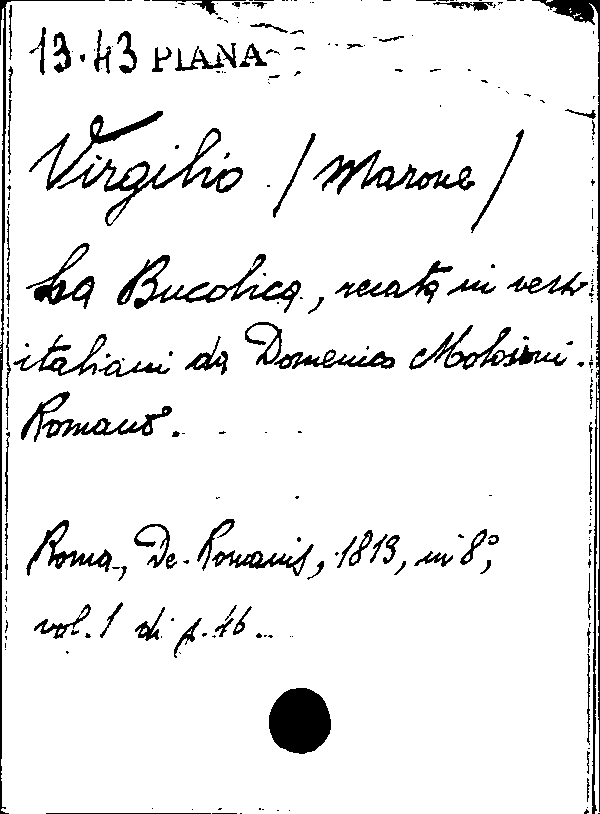 13.43 PIANA
Virgilio / Marone /
La Bucolica, recata in versi
italiani da Domenico Molossini.
Romano.
Roma, De-Romanis, 1813, in 8°,
vol. 1 di p. 46.